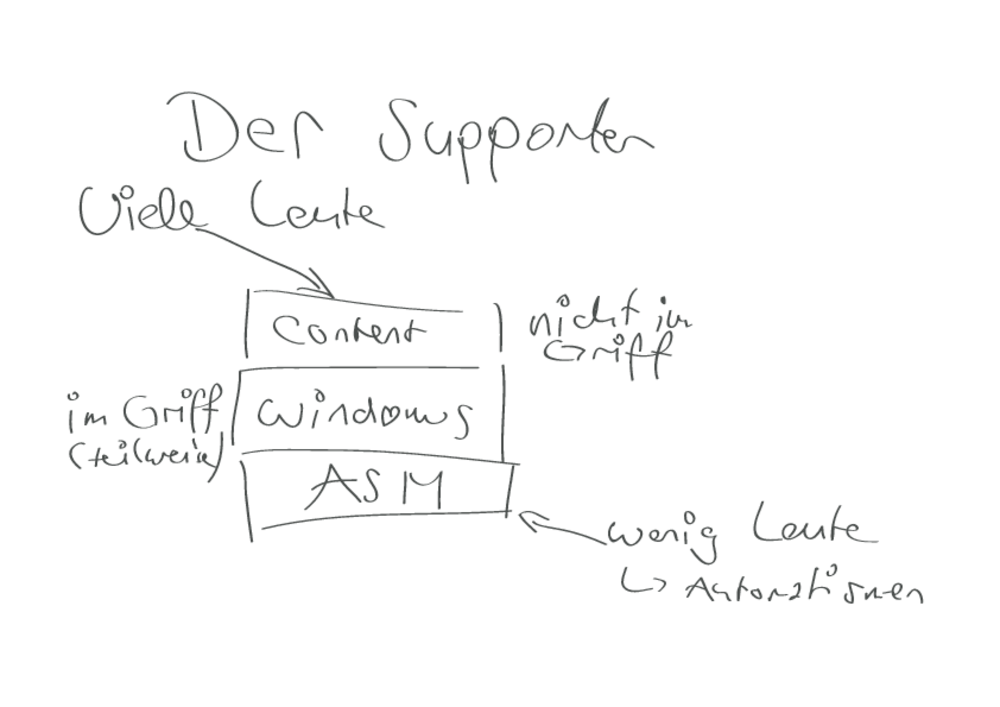 Der Supporter
Viele Leute
Content
nicht im
Griff
im Griff
(teilweise)
Windows
ASM
wenig Leute
↳ Automatismen